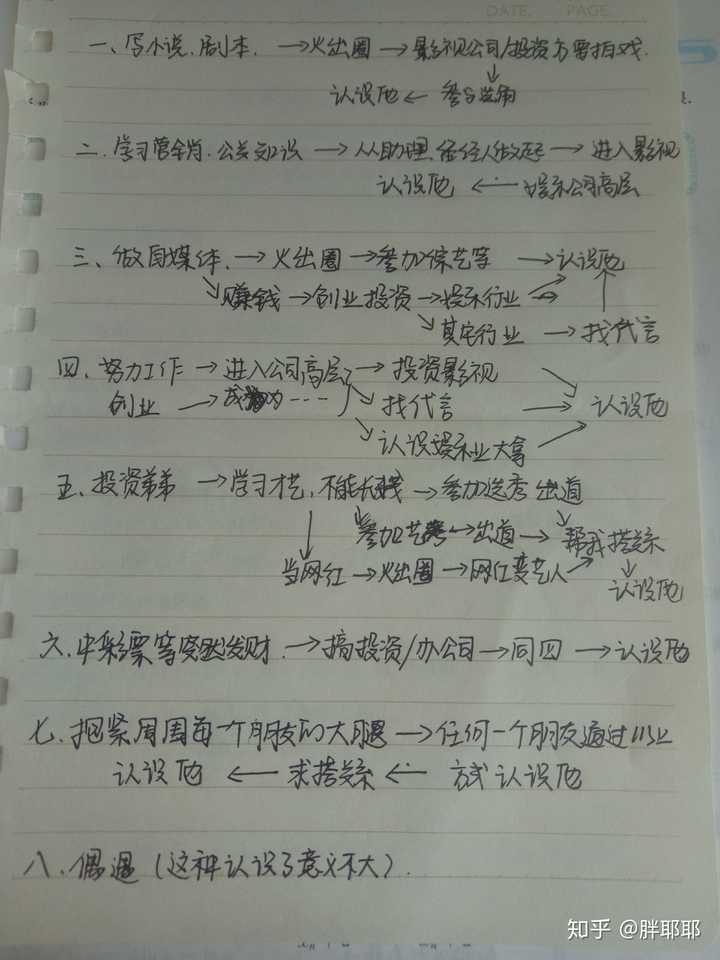 DATE. PAGE
一、写小说、剧本. →火出圈→影视公司/投资方要拍戏.
↓
认识他 ← 参与选角
二、学习营销、公关知识 →从助理、经纪人做起→ 进入影视
认识他 ← 娱乐公司高层
三、做自媒体、→火出圈→参加综艺等 →认识他
↘赚钱→创业投资→娱乐行业→
↘其它行业 → 找代言 ↑
四、努力工作→进入公司高层→投资影视 ↘
创业 → 成为…… 找代言 → 认识他
↘认识娱乐业大拿 ↗
五、投资弟弟 →学习才艺、→参加选秀出道
↓ 参加艺考→出道→帮我搭关系
当网红→火出圈→网红变艺人↗ ↓
认识他
六、中彩票等突然发财. →搞投资/办公司→同四→认识他
七、抱紧周围每一个朋友的大腿→任何一个朋友通过1152
认识他 ← 求搭关系 ← 方式认识他
八、偶遇(这种认识了意义不大).
知乎 @胖耶耶